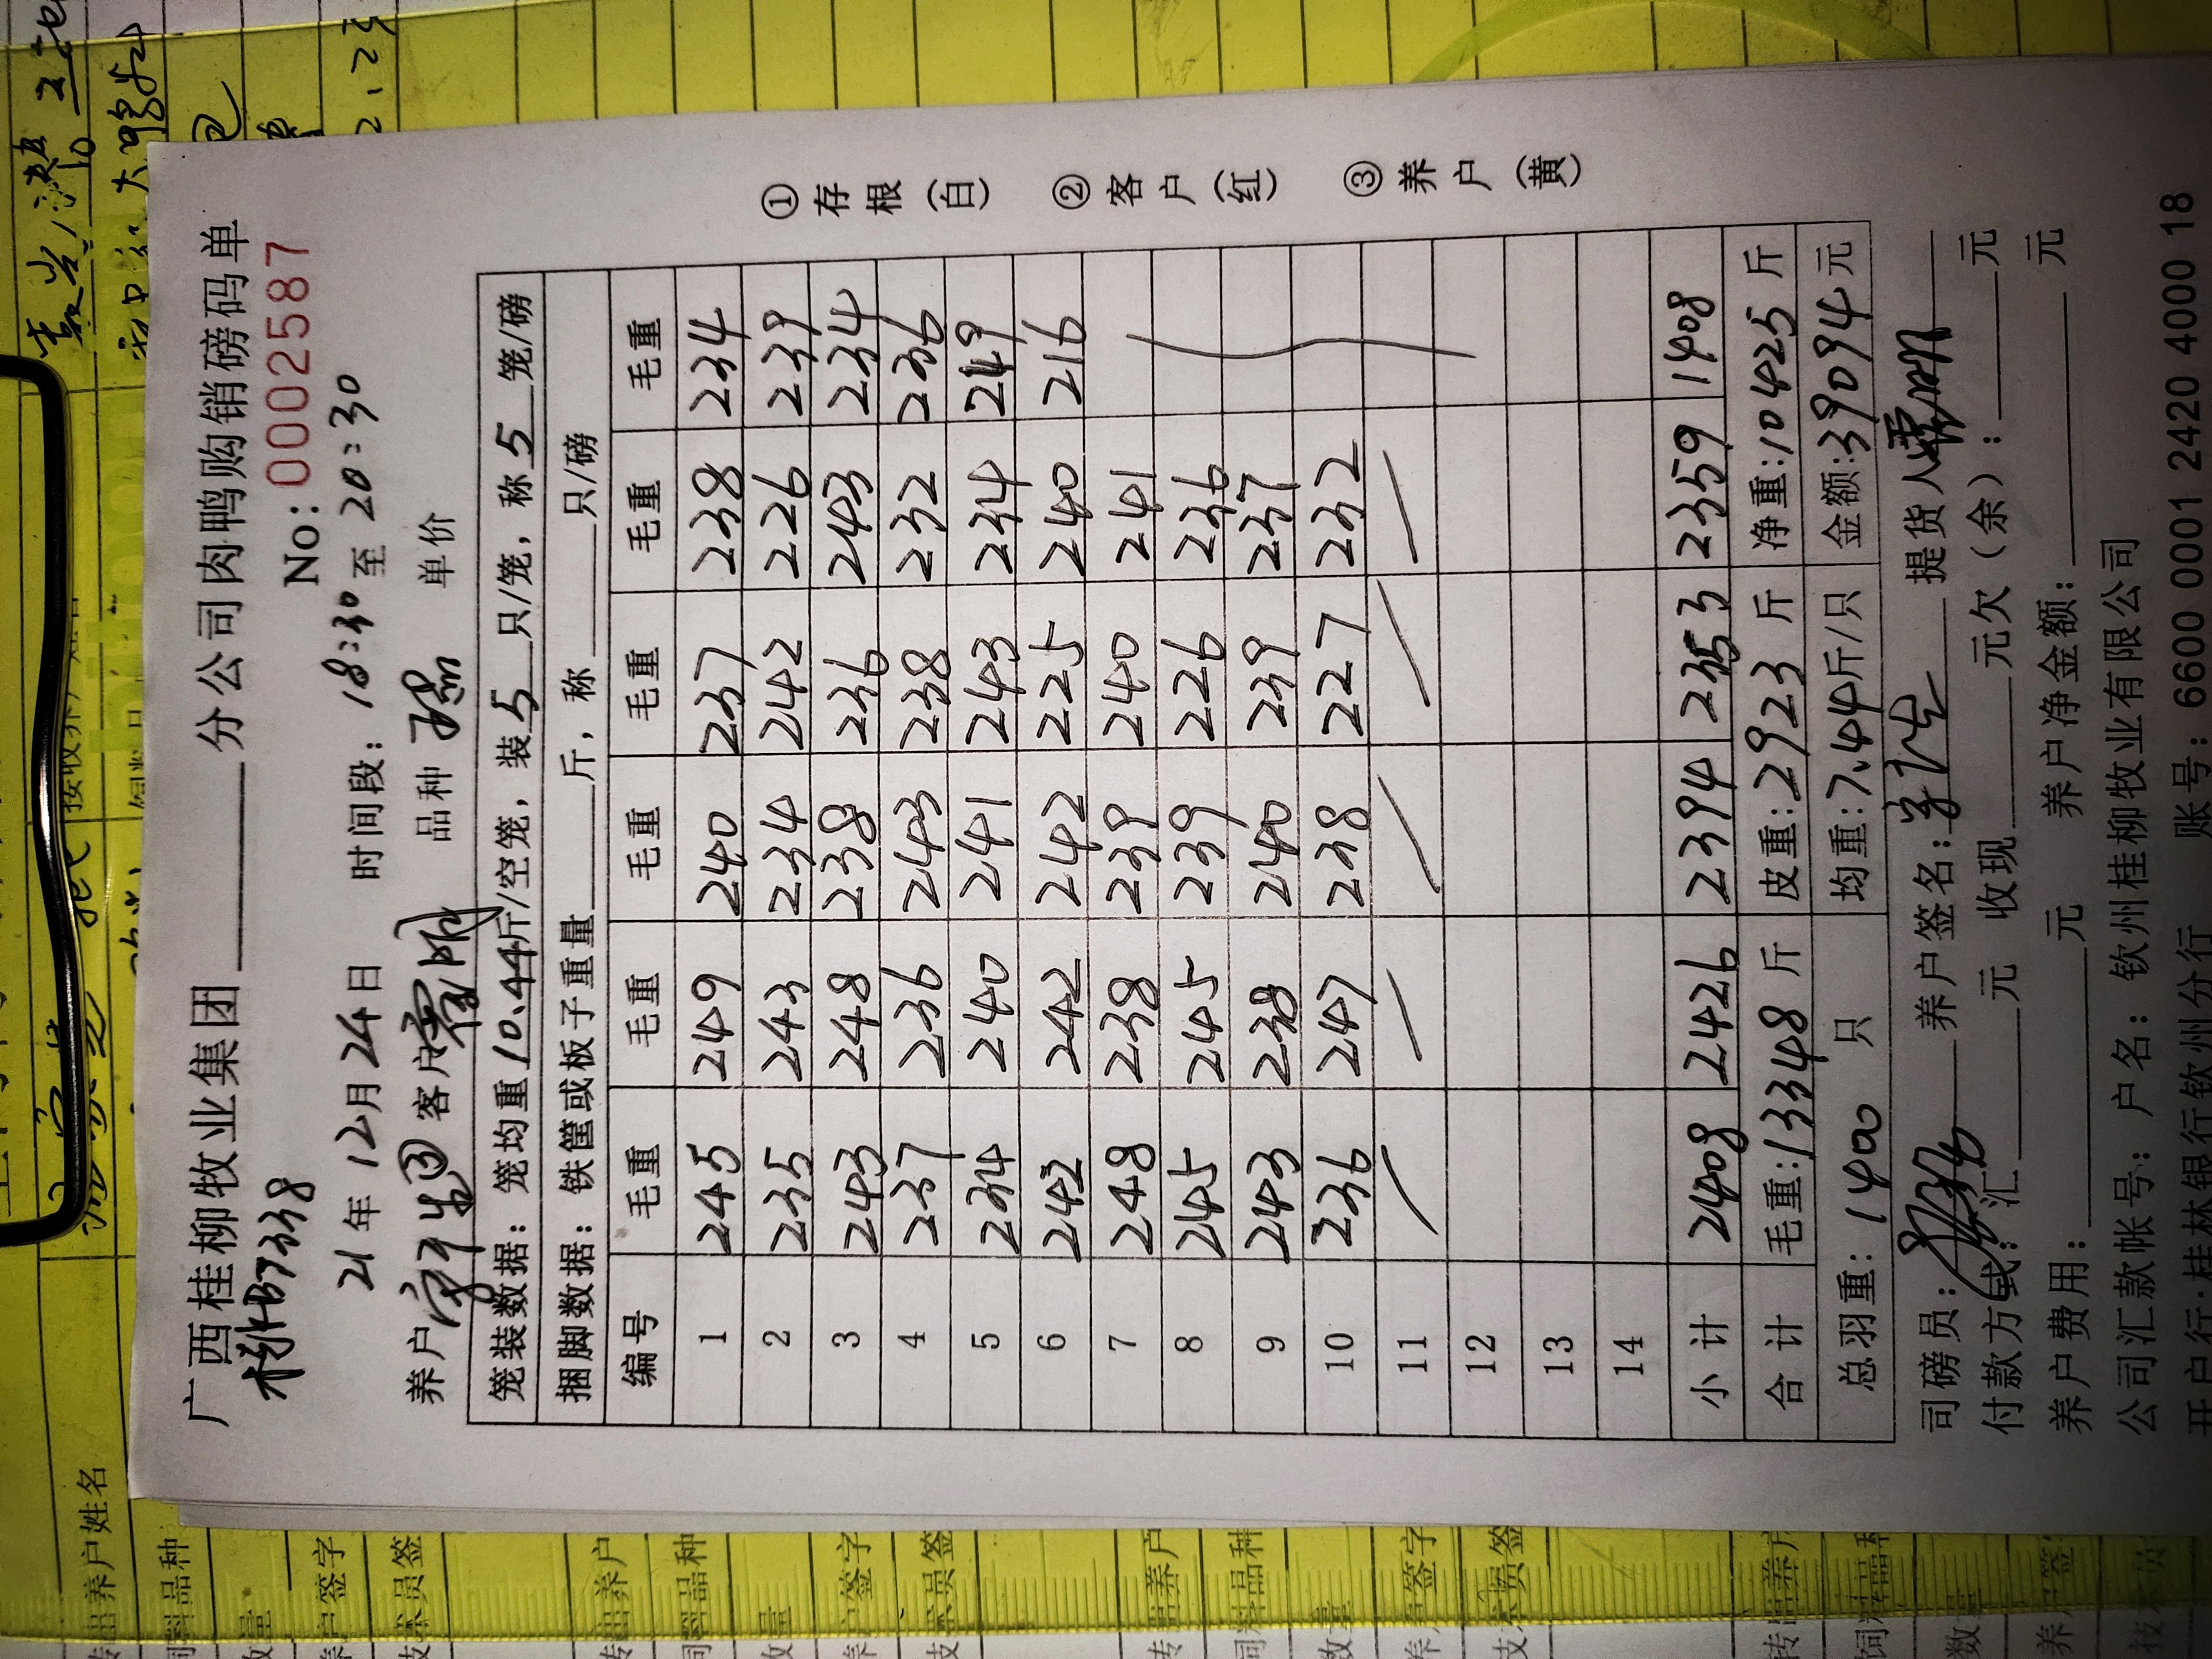 广西桂柳牧业集团 分公司肉鸭购销磅码单
桂BT7338 No: 0002587
21年12月24日 时间段: 18:30至20:30
养户 客户 品种 单价
笼装数据: 笼均重10.44斤/空笼, 装5只/笼, 称5笼/磅
捆脚数据: 铁筐或板子重量 斤, 称 只/磅
编号 毛重 毛重 毛重 毛重 毛重 毛重
1 245 249 240 237 238 234
2 235 243 234 242 226 239
3 243 248 238 236 243 234
4 237 236 243 238 232 236
5 234 240 241 243 234 249
6 242 242 242 225 240 216
7 248 238 239 240 241
8 245 245 239 226 236
9 243 238 240 239 237
10 236 247 238 227 232
11
12
13
14
小计 2408 2426 2394 2353 2359 1408
合计 毛重:13348斤 皮重:2923斤 净重:10425斤
总羽重: 1400 只 均重:7.44斤/只 金额:39094元
司磅员: 养户签名: 提货人
付款方式: 汇 元 收现 元欠(余): 元
养户费用: 元 养户净金额: 元
公司汇款帐号: 户名: 钦州桂柳牧业有限公司
开户行:桂林银行钦州分行 账号: 6600 0001 2420 4000 18
①存根(白) ②客户(红) ③养户(黄)